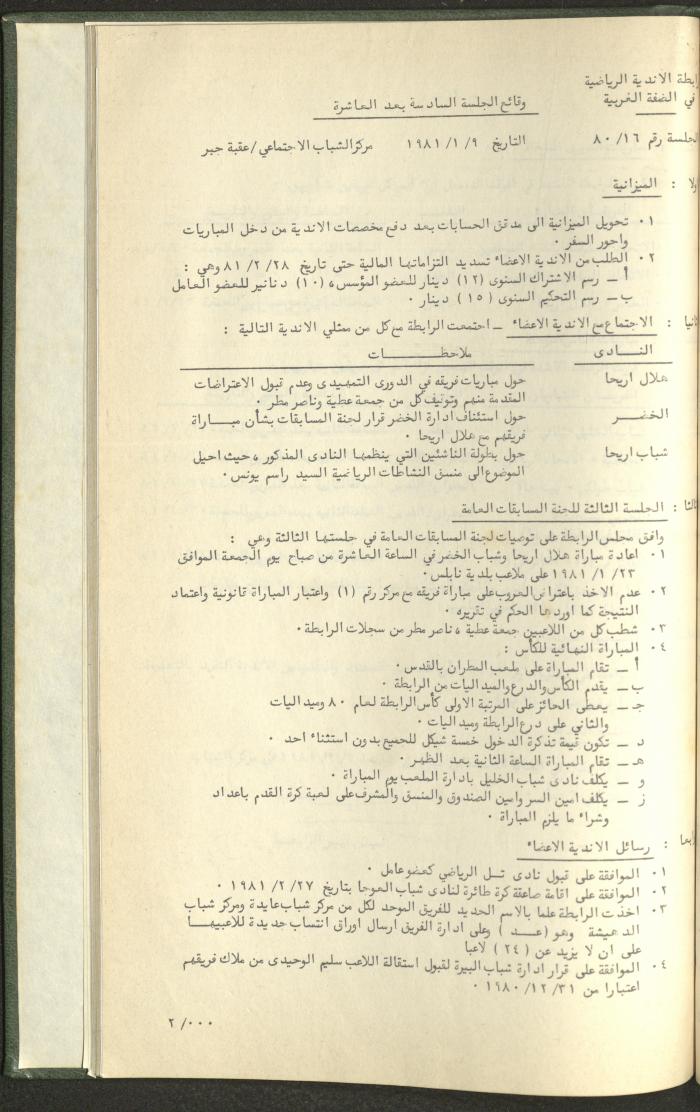 رابطة الاندية الرياضية
في الضفة الغربية
وقائع الجلسة السادسة بعد العاشرة
الجلسة رقم ٨٠/١٦ التاريخ ٩ /١ /١٩٨١ مركز الشباب الاجتماعي/عقبة جبر
اولا : الميزانية
٠١ تحويل الميزانية الى مدقق الحسابات بعد دفع مخصصات الاندية من دخل المباريات
واجور السفر ٠
٠٢ الطلب من الاندية الاعضاء تسديد التزاماتها المالية حتى تاريخ ٢٨/ ٢/ ٨١ وهي :
أ ــ رسم الاشتراك السنوى (١٢) دينار للعضو المؤسس، (١٠) دنانير للعضو العامل
ب ــ رسم التحكيم السنوى (١٥) دينار ٠
ثانيا : الاجتماع مع الاندية الاعضاء ــ اجتمعت الرابطة مع كل من ممثلي الاندية التالية :
النــــادى ملاحظــــــــات
هلال اريحا حول مباريات فريقه في الدورى التمهيدى وعدم قبول الاعتراضات
المقدمة منهم وتوقيف كل من جمعة عطية وناصر مطر ٠
الخضـــر حول استئناف ادارة الخضر قرار لجنة المسابقات بشأن مبــــاراة
فريقهم مع هلال اريحا ٠
شباب اريحا حول بطولة الناشئين التي ينظمها النادى المذكور ، حيث احيل
الموضوع الى منسق النشاطات الرياضية السيد راسم يونس ٠
ثالثا : الجلسة الثالثة للجنة المسابقات العامة
وافق مجلس الرابطة على توصيات لجنة المسابقات العامة في جلستها الثالثة وهي :
٠١ اعادة مباراة هلال اريحا وشباب الخضر في الساعة العاشرة من صباح يوم الجمعة الموافق
٢٣ /١ /١٩٨١ على ملاعب بلدية نابلس ٠
٠٢ عدم الاخذ باعتراض العروب على مباراة فريقه مع مركز رقم (١) واعتبار المباراة قانونية واعتماد
النتيجة كما اوردها الحكم في تقريره ٠
٠٣ شطب كل من اللاعبين جمعة عطية ، ناصر مطر من سجلات الرابطة ٠
٠٤ المباراة النهائية للكأس :
أ ــ تقام المباراة على ملعب المطران بالقدس ٠
ب ــ يقدم الكأس والدرع والميداليات من الرابطة ٠
جـ ــ يعطى الحائز على المرتبة الاولى كأس الرابطة لعام ٨٠ وميداليات
والثاني على درع الرابطة وميداليات ٠
د ــ تكون قيمة تذكرة الدخول خمسة شيكل للجميع بدون استثناء احد ٠
هـ ــ تقام المباراة الساعة الثانية بعد الظهر ٠
و ــ يكلف نادى شباب الخليل بادارة الملعب يوم المباراة ٠
ز ــ يكلف امين السر وامين الصندوق والمنسق والمشرف على لعبة كرة القدم باعداد
وشراء ما يلزم المباراة ٠
رابعا : رسائل الاندية الاعضاء
٠١ الموافقة على قبول نادى تــل الرياضي كعضو عامل ٠
٠٢ الموافقة على اقامة صاعقة كرة طائرة لنادى شباب العوجا بتاريخ ٢٧/ ٢/ ١٩٨١ ٠
٠٣ اخذت الرابطة علما بالاسم الجديد للفريق الموحد لكل من مركز شباب عايدة ومركز شباب
الدهيشة وهو (عــــد) وعلى ادارة الفريق ارسال اوراق انتساب جديدة للاعبيهـــا
على ان لا يزيد عن (٢٤) لاعبا
٠٤ الموافقة على قرار ادارة شباب البيرة لقبول استقالة اللاعب سليم الوحيدى من ملاك فريقهم
اعتبارا من ٣١ /١٢ /١٩٨٠ ٠
٠٠٠/ ٢